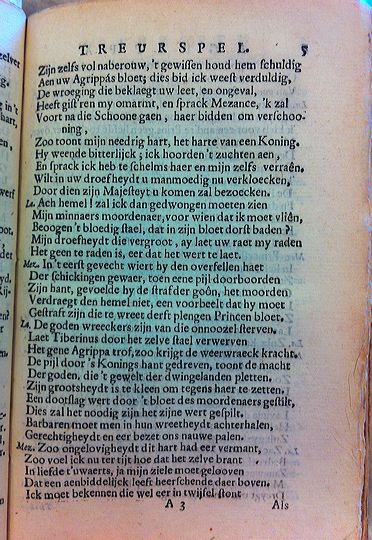 TREURSPEL. 5
Zijn zelfs vol naberouw, 't gewissen houd hem schuldig
Aen uw Agrippás bloet; dies bid ick weest verduldig,
De wroeging die beklaegt uw leet, en ongeval,
Heeft gist'ren my omarmt, en sprack Mezance, 'k zal
Voort na die Schoone gaen, haer bidden om verschoo-
ning,
Zoo toont mijn needrig hart, het harte van een Koning.
Hy weende bitterlijck; ick hoorden 't zuchten aen,
En sprack ick heb te schelms haer en mijn zelfs verraên.
Wilt in uw droefheydt u manmoedig nu verkloecken,
Door dien zijn Majesteyt u komen zal bezoecken.
La. Ach hemel! zal ick dan gedwongen moeten zien
Mijn minnaers moordenaer, voor wien dat ik moet vliên,
Beoogen 't bloedig stael, dat in zijn bloet dorst baden?
Mijn droefheydt die vergroot, ay laet uw raet my raden
Het geen te raden is, eer dat het wert te laet.
Mez. In 't eerst gevecht wiert hy den overfellen haet
Der schickingen gewaer, toen eene pijl doorboorden
Zijn hant, gevoelde hy de straf der goôn, het moorden
Verdraegt den hemel niet, een voorbeelt dat hy moet
Gestraft zijn die te wreet derft plengen Princen bloet.
La. De goden wreeckers zijn van die onnoozel sterven.
Laet Tiberinus door het zelve stael verwerven
Het gene Agrippa trof, zoo krijgt de weerwraeck kracht.
De pijl door 's Konings hant gedreven, toont de macht
Der goden, die 't gewelt der dwingelanden pletten.
Zijn grootsheydt is te kleen om tegens haer te zetten.
Een dootslag wert door 't bloet des moordenaers gestilt,
Dies zal het noodig zijn het zijne wert gespilt.
Barbaren moet men in hun wreetheydt achterhalen,
Gerechtigheydt en eer bezet ons nauwe palen.
Mez. Zoo ongelovigheydt dit hart had eer vermant,
Zoo voel ick nu ter tijt hoe dat het zelve brant
In liefde t'uwaerts, ja mijn ziele moet gelooven
Dat een aenbiddelijck leeft heerschende daer boven.
Ick moet bekennen die wel eer in twijfel stont
A 3 Als